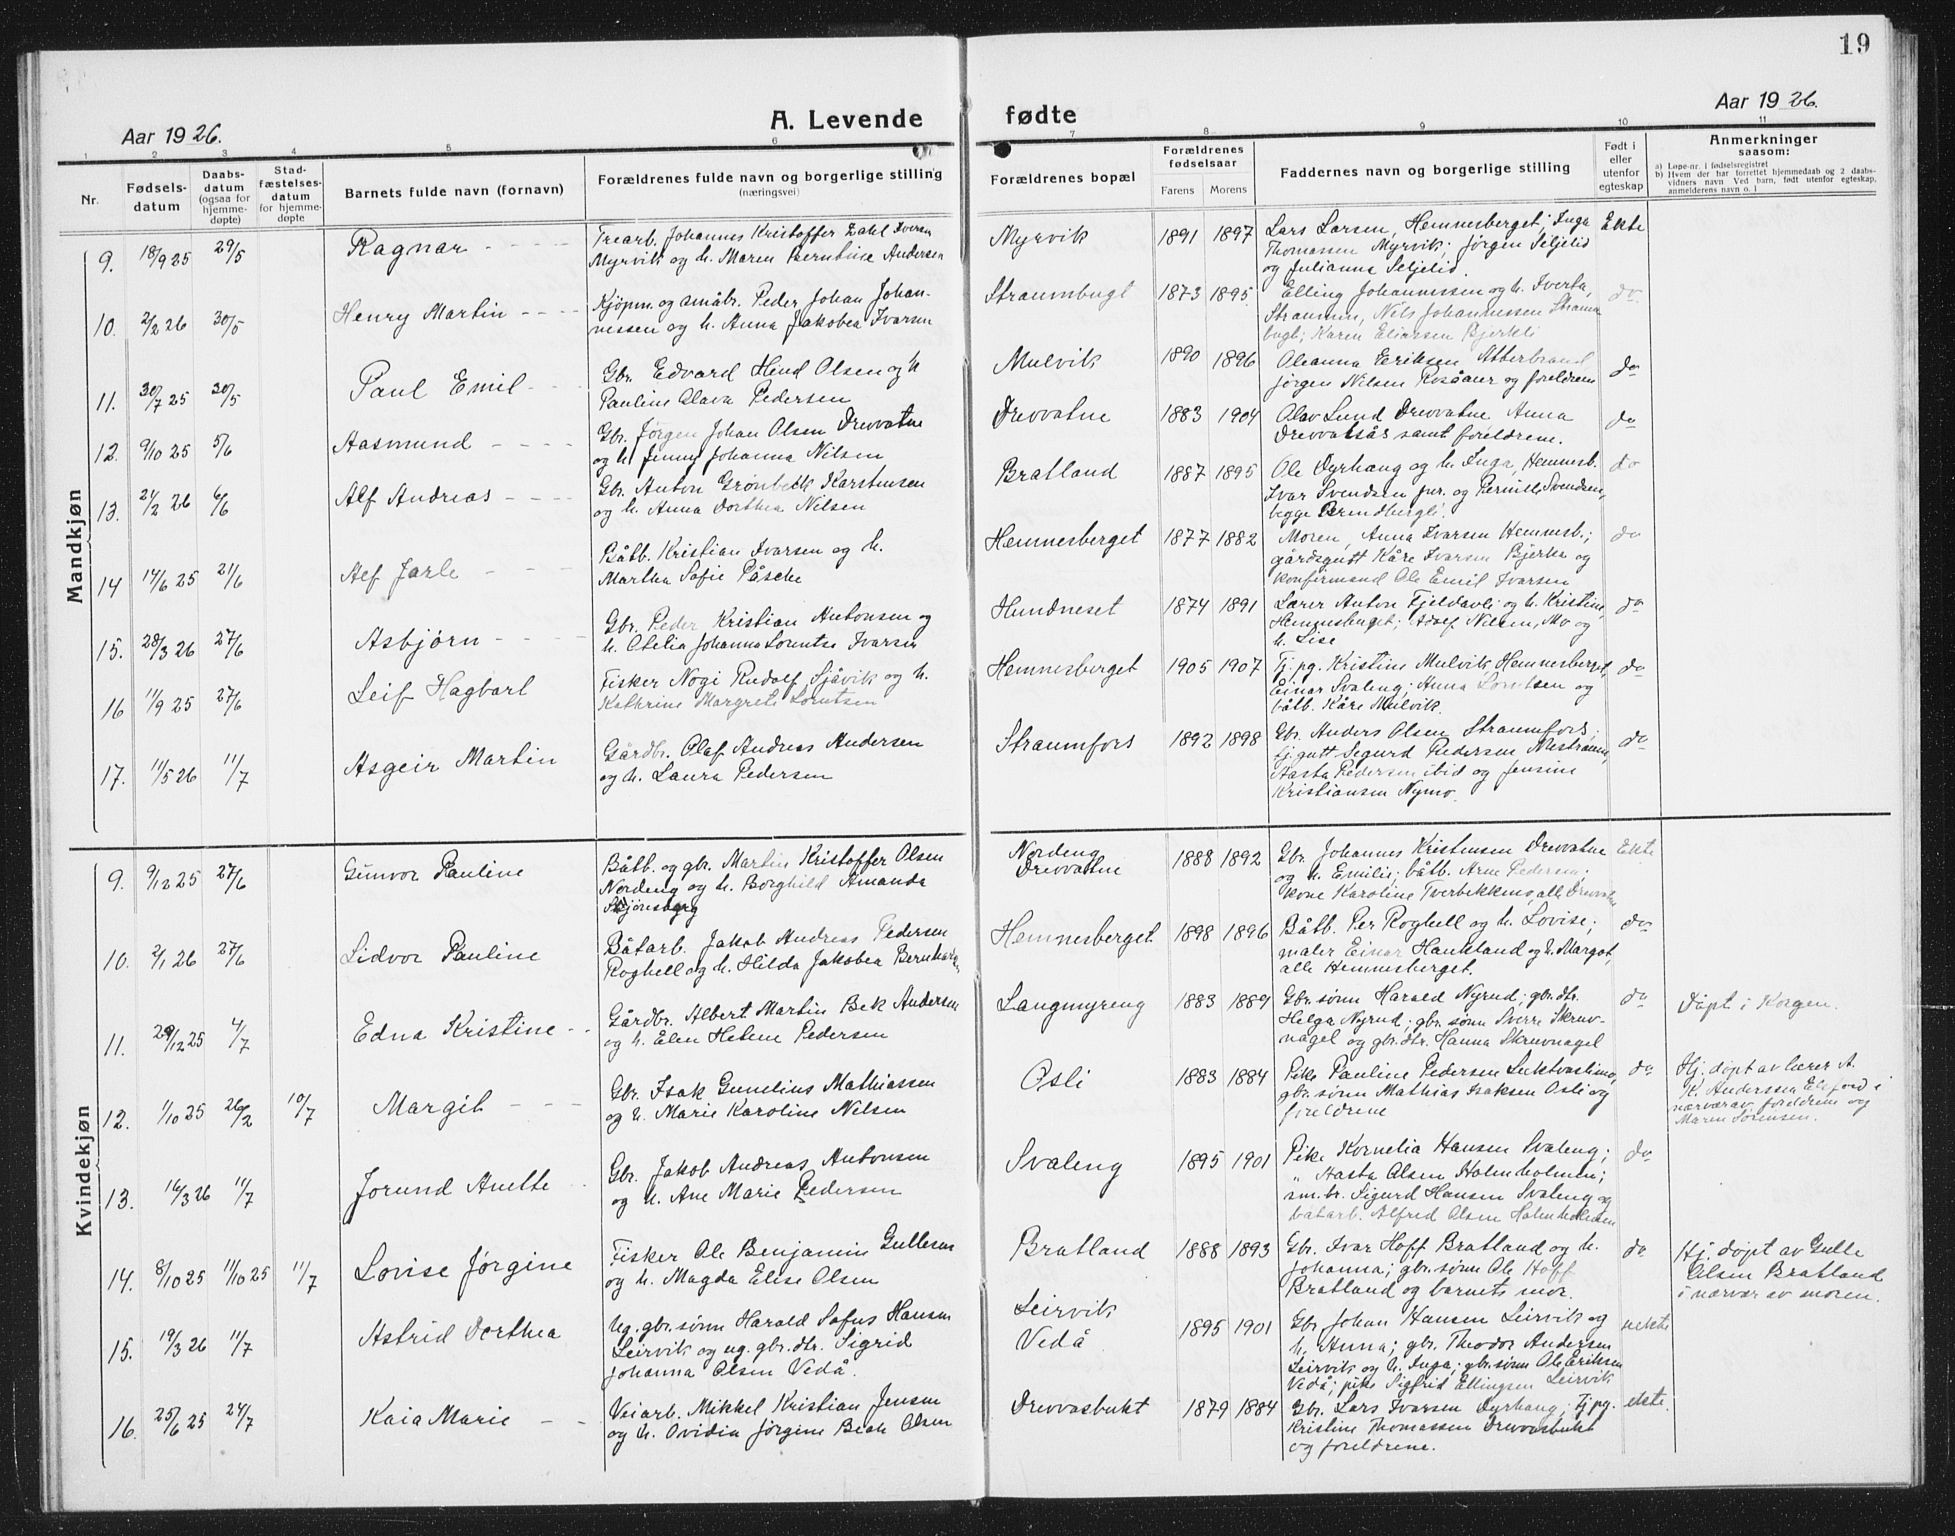 19
Aar 1926.
A. Levende
fødte
Aar 1926.
1 2 3 4 5 6 7 8 9 10 11
Nr.
Fødsels-
datum
Daabs-
datum
(ogsaa for
hjemme-
døpte)
Stad-
fæstelses-
datum
for hjemme-
døpte
Barnets fulde navn (fornavn)
Forældrenes fulde navn og borgerlige stilling
(næringsvei)
Forældrenes bopæl
Forældrenes
fødselsaar
Farens Morens
Faddernes navn og borgerlige stilling
Født i
eller
utenfor
egteskap
Anmerkninger
saasom:
a) Løpe-nr. i fødselsregistret
b) Hvem der har forrettet hjemmedaab og 2 daabs-
vidners navn Ved barn, født utenfor egteskap,
anmelderens navn o. l
Mandkjøn
9. 18/9 25 29/5 Ragnar
Trearb. Johannes Kristoffer Iversen
Myrvik og h. Maren Berntine Andersen
Myrvik 1891 1897
Lars Larsen, Hemnesberget; Inga
Thomassen Myrvik; Jørgen Seljelid
og Julianna Seljelid.
Ekte
10. 2/2 26 30/5 Henry Martin
Kjøpm. og småbr. Peder Johan Johan-
nessen og h. Anna Jakobea Ivarsen
Straumbugt 1873 1895
Elling Johannessen og h. Iverta,
Straumen, Nils Johannessen Straum
bugt; Karen Eliassen Bjerkli
do
11. 30/7 25 30/5 Paul Emil
Gbr. Edvard Hind Olsen og h
Pauline Olava Pedersen
Mulvik 1890 1896
Oleanna Eriksen Atterbrand
Jørgen Nilsen Rosåaer og foreldrene
do
12. 9/10 25 5/6 Aasmund
Gbr. Jørgen Johan Olsen Drevvatne
og h. Jenny Johanna Nilsen
Drevvatne 1883 1904
Olav Lund Drevvatne Anna
Drevvatsås samt foreldrene.
do
13. 21/2 26 6/6 Alf Andreas
Gbr. Anton Grønbeck Karstensen
og h. Anna Dorthea Nilsen
Bratland 1887 1895
Ole Dyrhaug og h. Inga, Hemnesb.
Ivar Svendsen jnr. og Pernille Svendsen,
begge
do
14 14/6 25 21/6 Alf Jarle
Båtb. Kristian Ivarsen og h.
Martha Sofie Påsche
Hemnesberget 1877 1882
Moren, Anna Ivarsen Hemnesb.;
gårdsgutt Kåre Ivarsen Bjerka og
konfirmand Ole Emil Ivarsen
do
15. 28/3 26 27/6 Asbjørn
Gbr. Peder Kristian Antonsen og
h. Otelia Johanna Lorentse Ivarsen
Hundneset 1874 1891
Lærer Anton Fjeldavli og h. Kristine,
Hemnesberget; Adolf Nilsen, Mo og
h. Lise
do
16 11/9 25 27/6 Leif Hagbart
Fisker Nogi Rudolf Sjåvik og h.
Kathrine Margrete Lorntsen
Hemnesberget 1905 1907
Tj.pg. Kristine Mulvik Hemnesberget,
Einar Svaleng; Anna Lorntsen og
båtb. Kåre Mulvik.
do
17. 11/5 26 11/7 Asgeir Martin
Gårdbr. Olaf Andreas Andersen
og h. Laura Pedersen
Straumfors 1892 1898
Gbr. Anders Olsen Straumfors;
tj.gutt Sigurd Pedersen Mestraumen,
Aasta Pedersen ibid og Jensine
Kristiansen Nymo.
do
Kvindekjøn
9. 9/12 25 27/6 Gunvor Pauline
Båtb. og gbr. Martin Kristoffer Olsen
Nordeng og h. Borghild Amanda
Nordeng
Drevvatne 1888 1892
Gbr. Johannes Kristensen Drevvatne
og h. Emilie; båtb. Arne Pedersen;
kone Karoline Tverbekkmo, alle
Ekte
10. 2/1 26 27/6 Lidvor Pauline
Båtarb. Jakob Andreas Pedersen
Roghell og h. Hilda Jakobea
Hemnesberget 1898 1896
Båtb. Per Roghell og h. Lovise;
maler Einar Haukland og h. Margot,
alle Hemnesberget.
do
11. 29/12 25 4/7 Edna Kristine
Gårdbr. Albert Martin Bek Andersen
og h. Elen Helene Pedersen
Langmyreng 1883 1889
Gbr. sønn Harald Nyrud; gbr.dtr.
Helga Nyrud; gbr. sønn Sverre Skruv-
nagel og gbr.dtr. Hanna Skruvnagel
do
Døpt i Korgen.
12. 11/10 25 26/2 10/7 Margit
Gbr. Isak Gunelius Mathiassen
og h. Marie Karoline Nilsen
Osli 1883 1884
Pike Pauline Pedersen
gbr. sønn Mathias Isaksen Osli og
foreldrene
do
Hj. døpt av lærer A.
K. Andersen Elsfjord i
nærvær av foreldrene og
Maren Sørensen.
13. 16/3 26 11/7 Jorund Anette
Gbr. Jakob Andreas Antonsen
og h. Ane Marie Pedersen
Svaleng 1895 1901
Pike Kornelia Hansen Svaleng;
" Aasta Olsen Holmholmen;
sm.br. Sigurd Hansen Svaleng og
båtarb. Alfred Olsen Holmholmen
do
14. 8/10 25 11/10 25 11/7 Lovise Jørgine
Fisker Ole Benjamin Gullesen
og h. Magda Elise Olsen
Bratland 1888 1893
Gbr. Ivar Hoff Bratland og h.
Johanna; gbr. sønn Ole Hoff
Bratland og barnets mor.
do
Hj. døpt av Gulle
Olsen Bratland
i nærvær av moren.
15. 19/3 26 11/7 Astrid Dorthea
Ug. gbr. sønn Harald Sofus Hansen
Leirvik og ug. gbr. dtr. Sigrid
Johanna Olsen Vedå.
Leirvik
Vedå 1895 1901
Gbr. Johan Hansen Leirvik og
h. Anna; gbr. Theodor Andersen
Leirvik og h. Inga; gbr. sønn Ole Eriksen
Vedå; pike Sigfrid Ellingsen Leirvik
uekte
16. 25/6 25 24/7 Kaia Marie
Veiarb. Mikkel Kristian Jensen
og h. Ovidia Jørgine Olsen
Drevvasbukt 1879 1884
Gbr. Lars Ivarsen Dyrhaug; Tj.pg.
Kristine Thomassen Drevvasbukt
og foreldrene.
ekte.